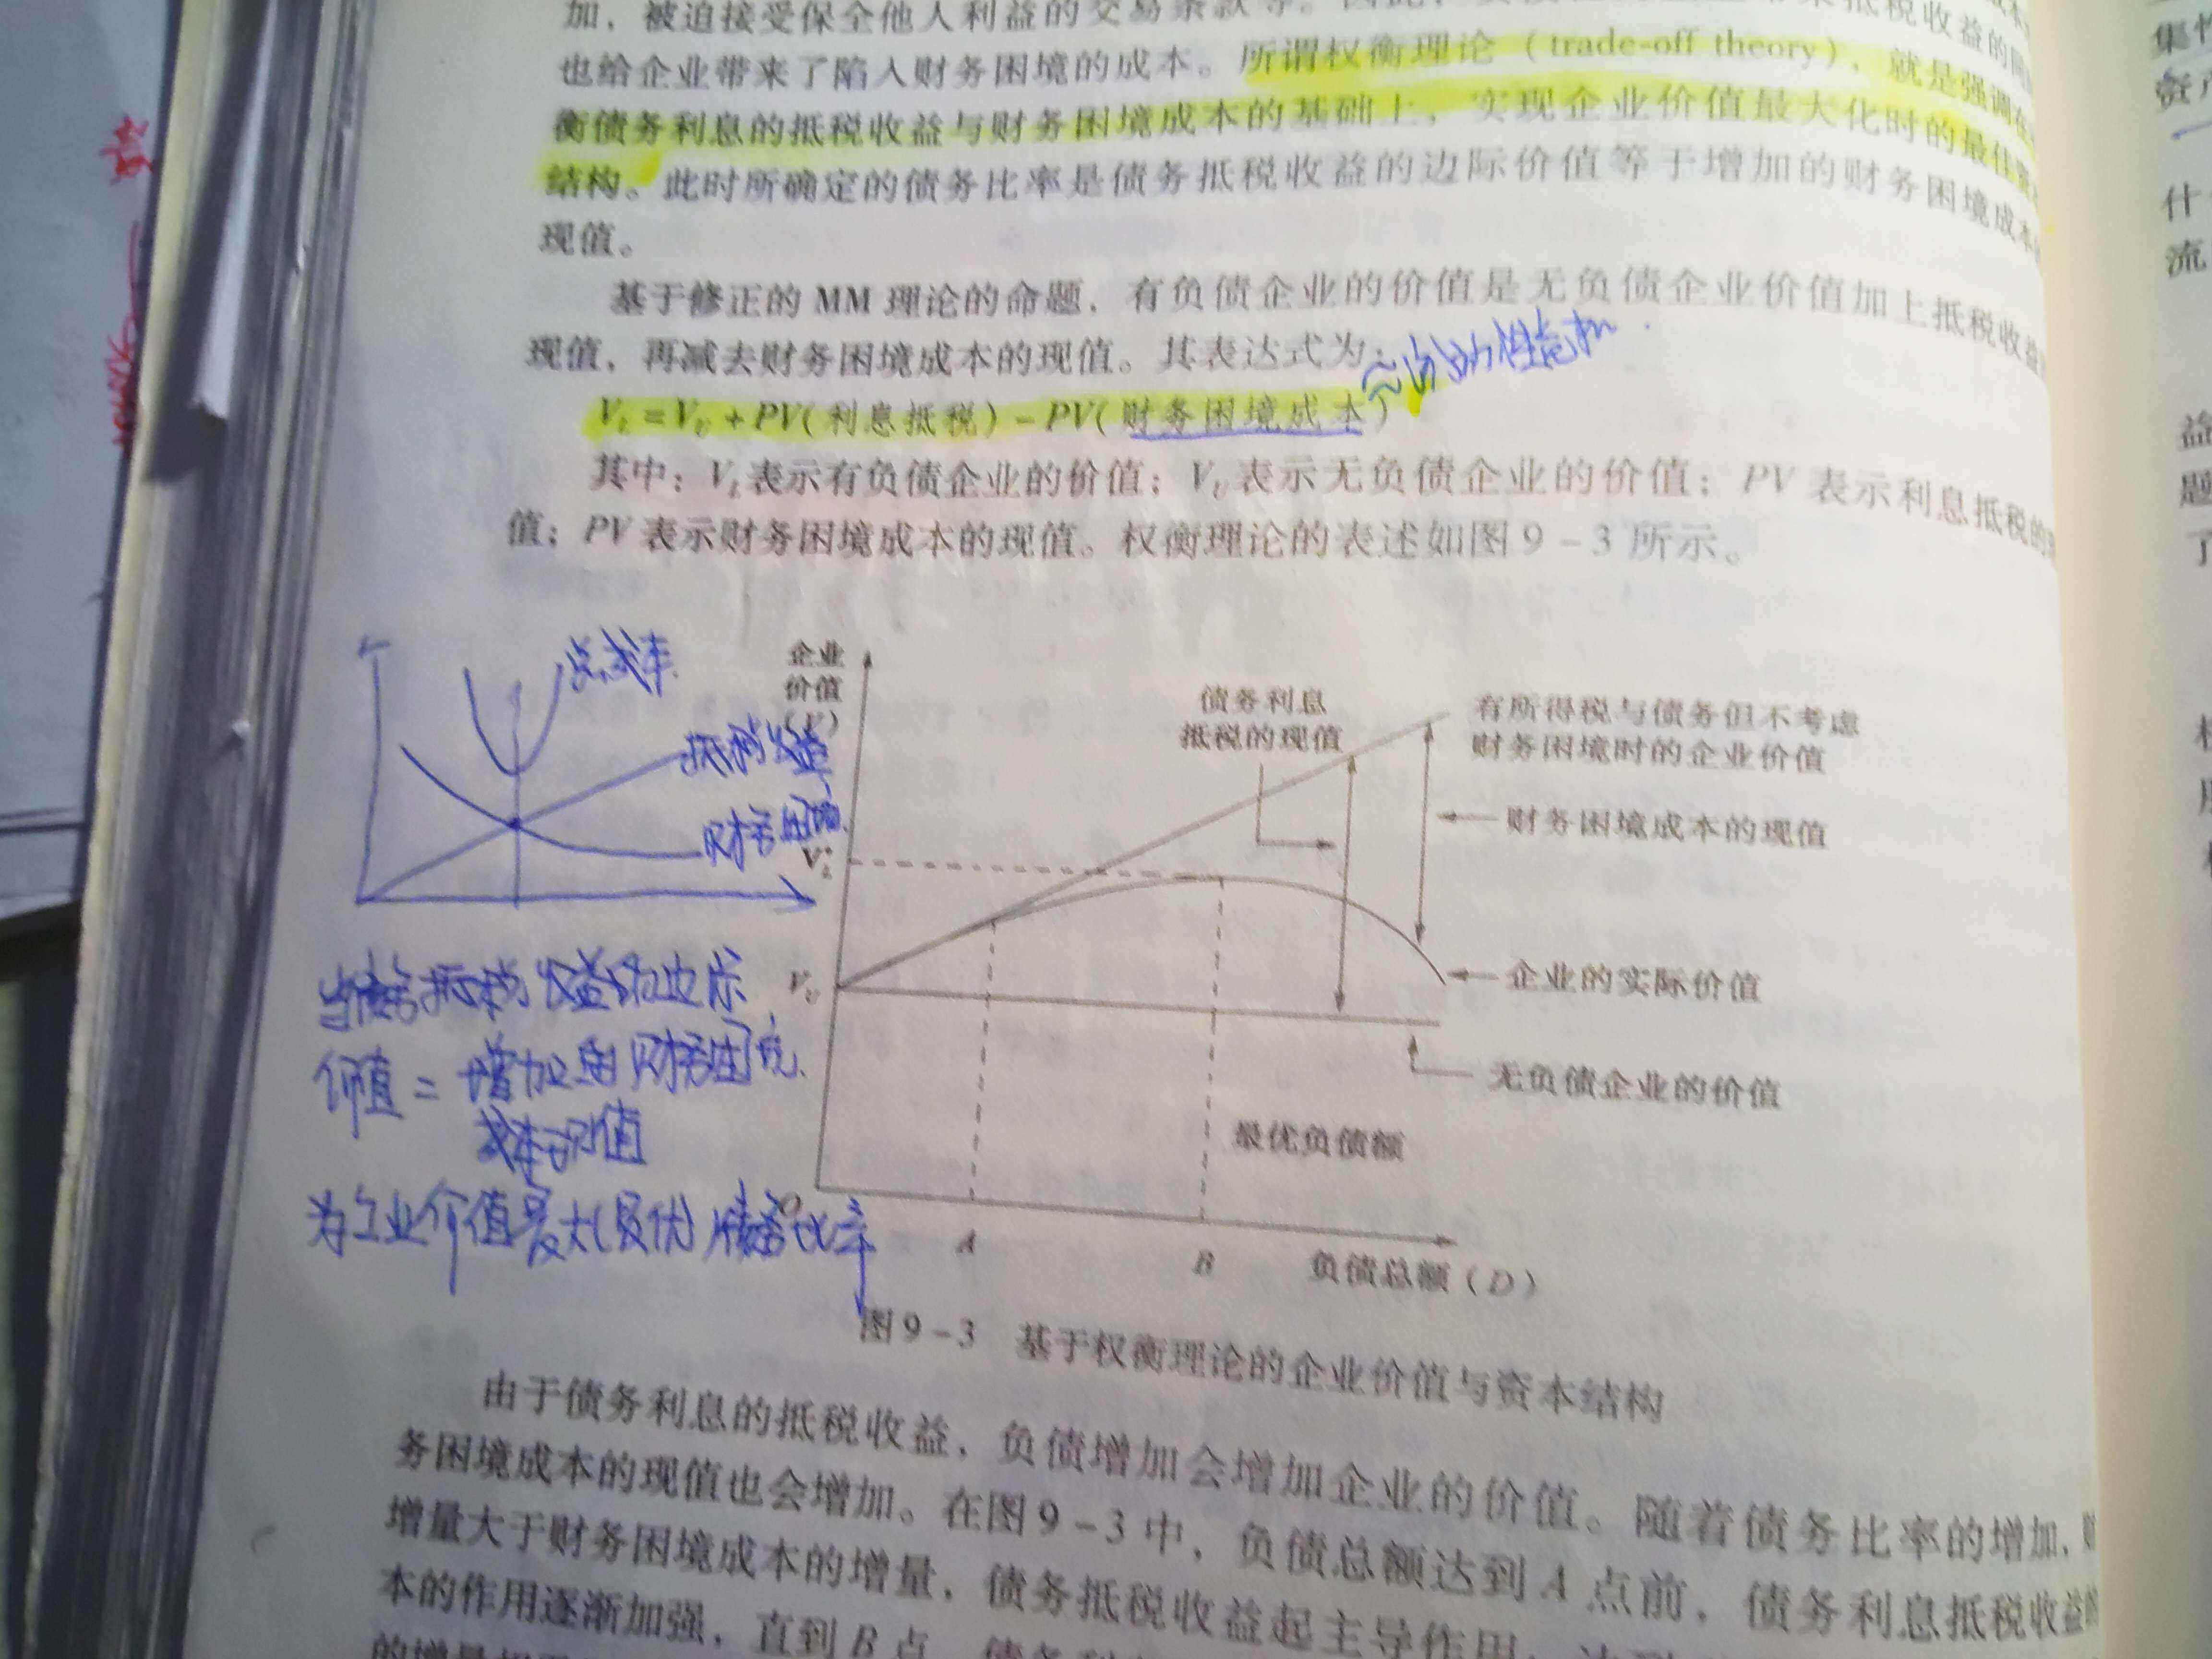 加，被迫接受保全他人利益的交易条款等。
抵税收益的同
也给企业带来了陷入财务困境的成本。所谓权衡理论（trade-off theory），就是强调在
衡债务利息的抵税收益与财务困境成本的基础上，实现企业价值最大化时的最佳资
结构。此时所确定的债务比率是债务抵税收益的边际价值等于增加的财务困境成本
现值。
基于修正的 MM 理论的命题，有负债企业的价值是无负债企业价值加上抵税收益
现值，再减去财务困境成本的现值。其表达式为：
V_L = V_U + PV(利息抵税) - PV(财务困境成本)
其中：V_L 表示有负债企业的价值；V_U 表示无负债企业的价值；PV 表示利息抵税的现
值；PV 表示财务困境成本的现值。权衡理论的表述如图 9-3 所示。
总成本
抵税收益
财务困境
当债务抵税收益的边际
价值 = 增加的财务困境
成本现值
为企业价值最大(最优)债务比率
企业
价值
(V)
V*_L
V_U
债务利息
抵税的现值
有所得税与债务但不考虑
财务困境时的企业价值
财务困境成本的现值
企业的实际价值
无负债企业的价值
最优负债额
O
A
B
负债总额（D）
图 9-3 基于权衡理论的企业价值与资本结构
由于债务利息的抵税收益，负债增加会增加企业的价值。随着债务比率的增加，财
务困境成本的现值也会增加。在图 9-3 中，负债总额达到 A 点前，债务利息抵税收益的
增量大于财务困境成本的增量，债务抵税收益起主导作用；达到
本的作用逐渐加强，直到 B 点，债务利
的增量相
集
资产
什
流
益
题
了